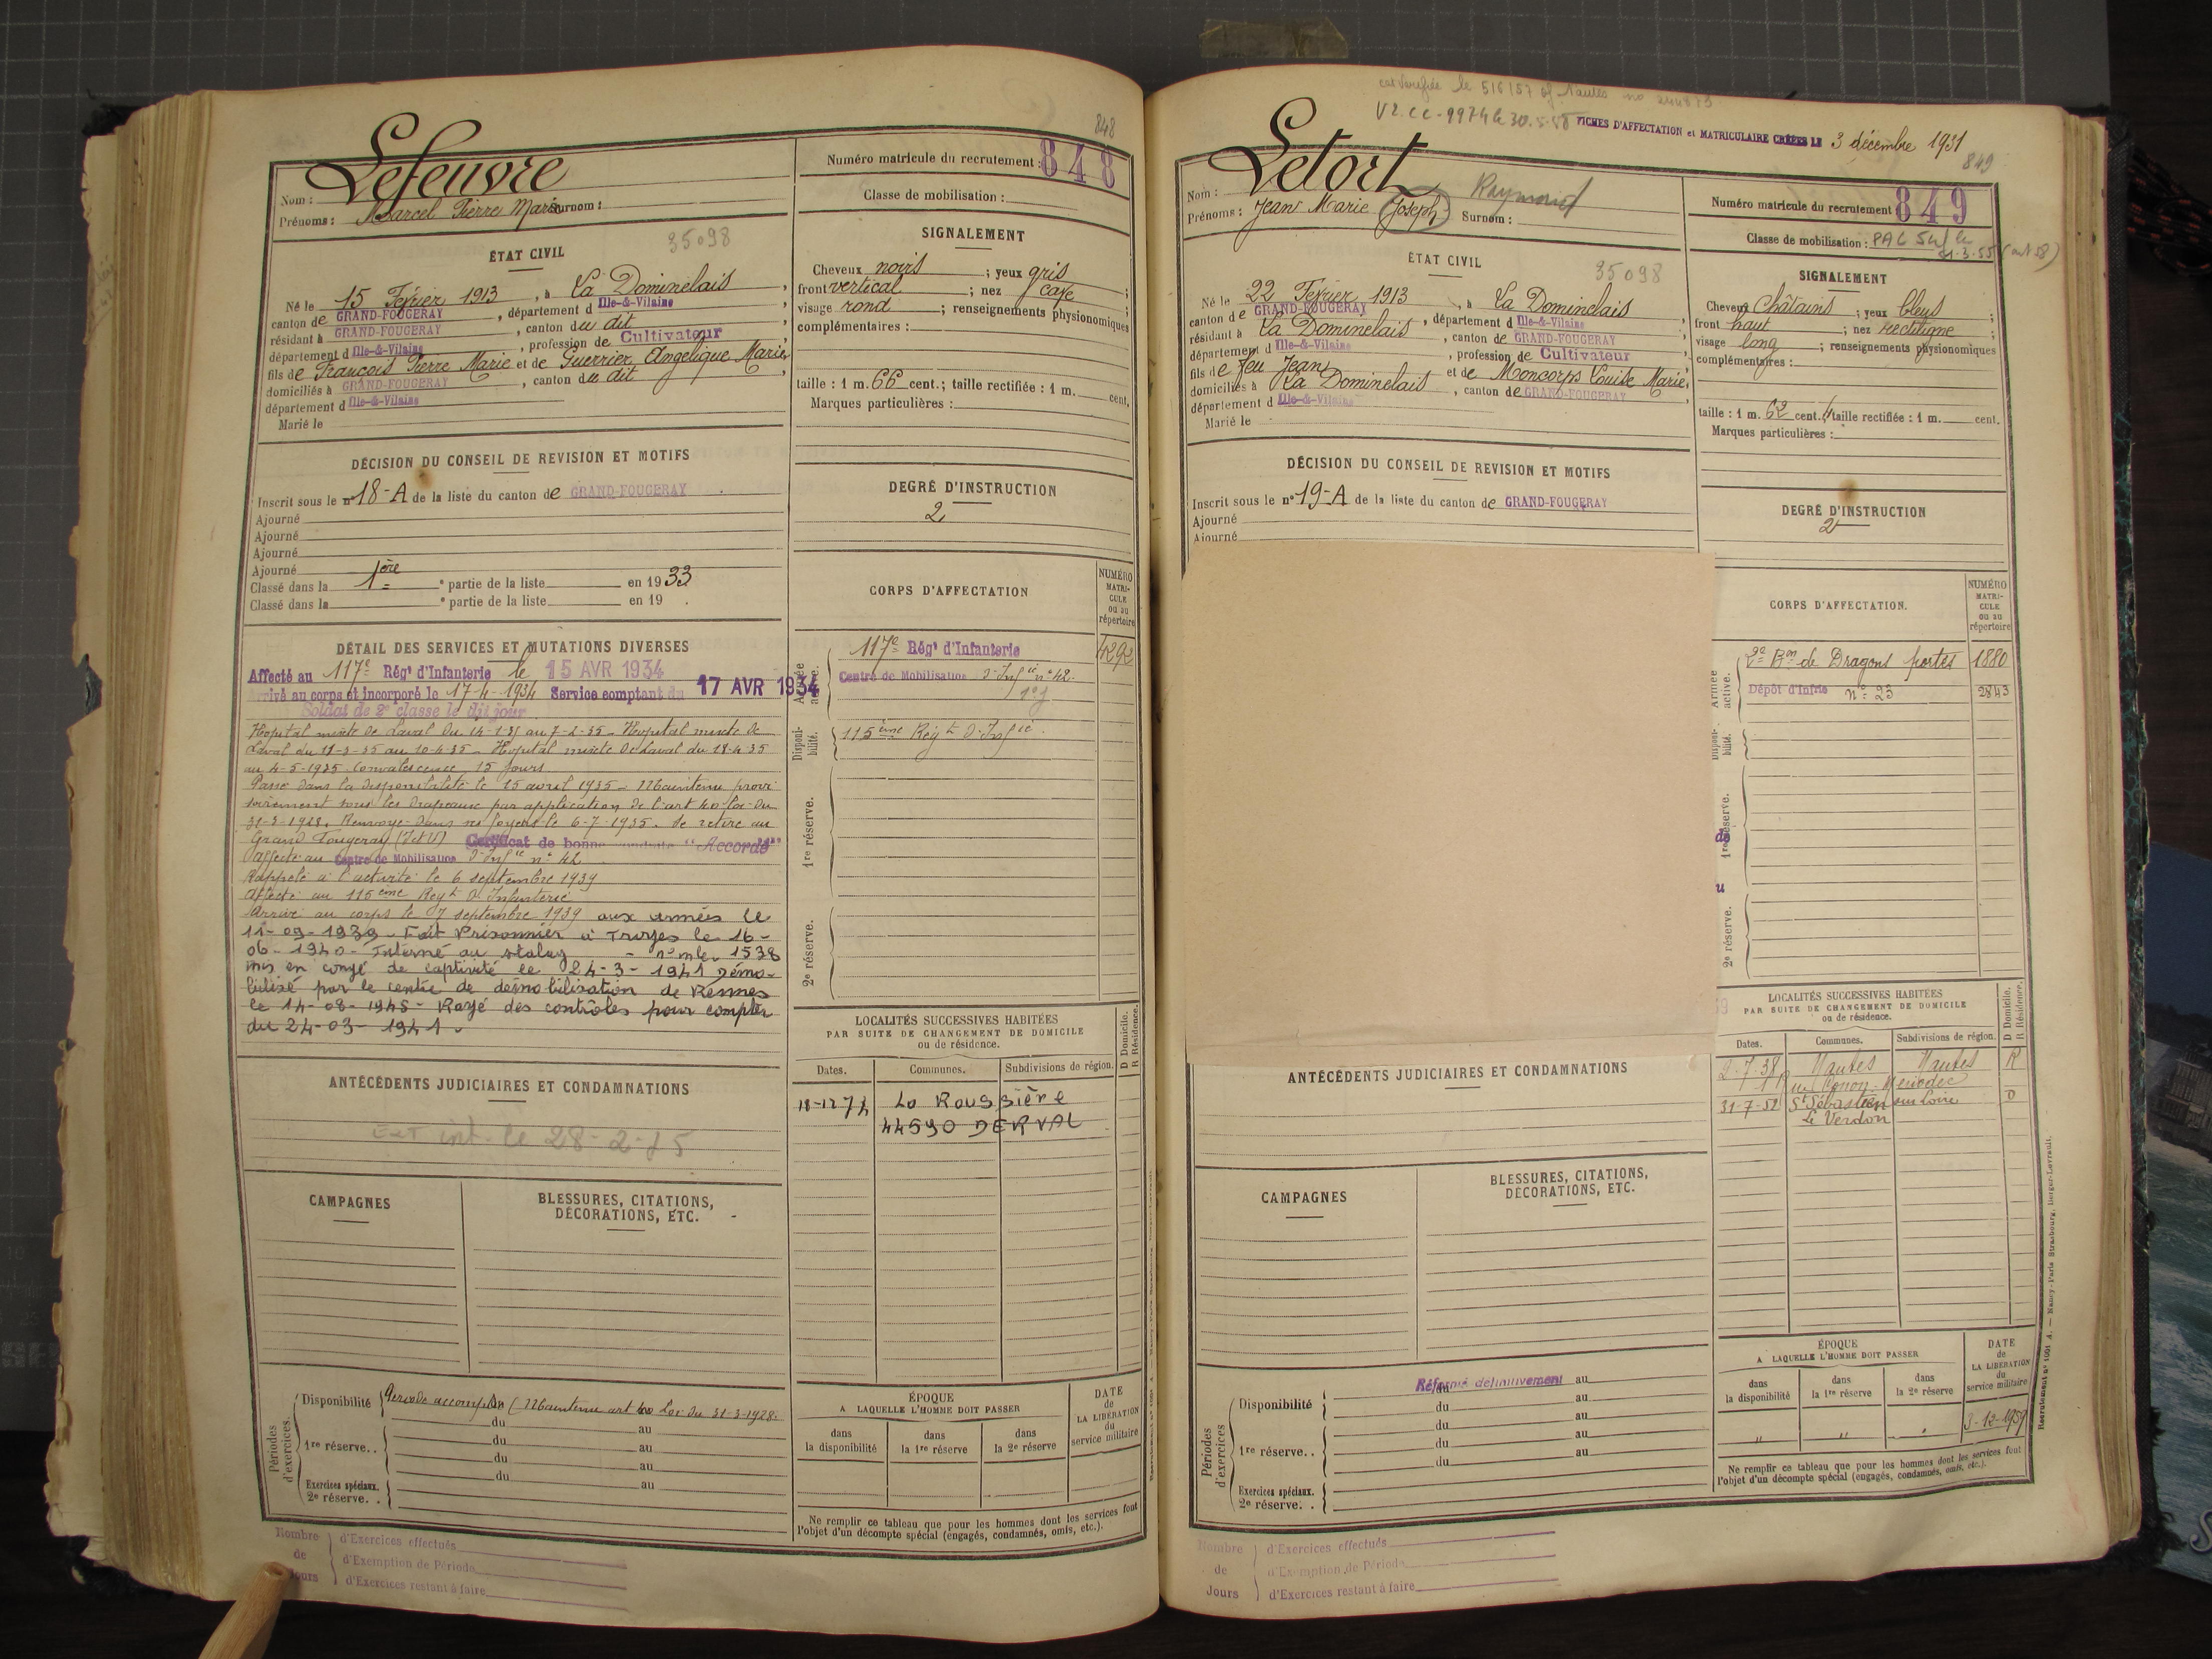 848
Lefeuvre
Nom :
Prénoms : Marcel Pierre Marie Surnom :
Numéro matricule du recrutement : 848
Classe de mobilisation :
ÉTAT CIVIL
35098
Né le 15 Fevrier 1913, à La Dominelais,
canton de GRAND-FOUGERAY, département d Ille-&-Vilaine,
résidant à GRAND-FOUGERAY, canton du dit,
département d Ille-&-Vilaine, profession de Cultivateur
fils de Francois Pierre Marie et de Guerrier Angelique Marie,
domiciliés à GRAND-FOUGERAY, canton du dit,
département d Ille-&-Vilaine
Marié le
SIGNALEMENT
Cheveux noirs ; yeux gris ;
front vertical ; nez cave ;
visage rond ; renseignements physionomiques
complémentaires :
taille : 1 m. 66 cent.; taille rectifiée : 1 m. cent.
Marques particulières :
DÉCISION DU CONSEIL DE REVISION ET MOTIFS
Inscrit sous le nº 18-A de la liste du canton de GRAND-FOUGERAY.
Ajourné
Ajourné
Ajourné
Ajourné
Classé dans la 1ère e partie de la liste en 1933
Classé dans la e partie de la liste en 19 .
DEGRÉ D'INSTRUCTION
2
DÉTAIL DES SERVICES ET MUTATIONS DIVERSES
Affecté au 117e Rég' d'Infanterie le 15 AVR 1934
Arrivé au corps et incorporé le 17-4-1934 Service comptant du 17 AVR 1934
Soldat de 2e classe le dit jour
Hopital mixte de Laval du 14-1-35 au 7-2-35. Hopital mixte de
Laval du 11-3-35 au 10-4-35. Hopital mixte de Laval du 18-4-35
au 4-5-1935 Convalescence 15 jours
Passé dans la disponibilité le 15 avril 1935. Maintenu provi
soirement sous les drapeaux par application de l'art 40 loi du
31-3-1928. Renvoyé dans ses foyers le 6-7-1935. Se retire au
Grand Fougeray (I et V) Certificat de bonne conduite "Accordé"
Affecté au Centre de Mobilisation d'Infie nº 42
Rappelé à l'activité le 6 septembre 1939
Affecté au 115ème Regt d'Infanterie
Arrivé au corps le 7 septembre 1939 aux armées le
11-09-1939 - Fait Prisonnier à Troyes le 16-
06-1940 - Interné au stalag - nº mle 1538
mis en congé de captivité le 24-3-1941 Démo-
bilisé par le centre de démobilisation de Rennes
le 14-08-1945 - Rayé des contrôles pour compter
du 24-03-1941.
CORPS D'AFFECTATION
NUMÉRO MATRI-CULE ou au répertoire
Armée active.
117e Rég' d'Infanterie 4292
Centre de Mobilisation d'Infie nº 42
Disponi-bilité.
115ème Regt d'Infie.
1re réserve.
2e réserve.
ANTÉCÉDENTS JUDICIAIRES ET CONDAMNATIONS
LOCALITÉS SUCCESSIVES HABITÉES
PAR SUITE DE CHANGEMENT DE DOMICILE
ou de résidence.
D Domicile.
R Résidence.
Dates. Communes. Subdivisions de région.
18-12 74 La Roussière
44590 DERVAL
CAMPAGNES
BLESSURES, CITATIONS,
DÉCORATIONS, ETC.
Périodes d'exercices.
Disponibilité Période accomplie (Maintenu art 40 Loi du 31-3-1928.
du au
1re réserve. . du au
du au
du au
Exercices spéciaux.
2e réserve. .
ÉPOQUE
A LAQUELLE L'HOMME DOIT PASSER
dans la disponibilité
dans la 1re réserve
dans la 2e réserve
DATE de LA LIBÉRATION du service militaire
Ne remplir ce tableau que pour les hommes dont les services font
l'objet d'un décompte spécial (engagés, condamnés, omis, etc.).
Nombre de Jours
d'Exercices effectués
d'Exemption de Période
d'Exercices restant à faire
FICHES D'AFFECTATION et MATRICULAIRE CRÉÉES LE 3 décembre 1931
849
Letort
Nom :
Raymond
Prénoms : Jean Marie Joseph Surnom :
Numéro matricule du recrutement 849
Classe de mobilisation :
ÉTAT CIVIL
35098
Né le 22 Fevrier 1913, à La Dominelais
canton de GRAND-FOUGERAY, département d Ille-&-Vilaine
résidant à La Dominelais, canton de GRAND-FOUGERAY
département d Ille-&-Vilaine, profession de Cultivateur
fils de feu Jean et de Moncorps Louise Marie,
domiciliés à La Dominelais, canton de GRAND-FOUGERAY,
département d Ille-&-Vilaine
Marié le
SIGNALEMENT
Cheveux Châtains ; yeux bleus ;
front haut ; nez rectiligne ;
visage long ; renseignements physionomiques
complémentaires :
taille : 1 m. 62 cent. taille rectifiée : 1 m. cent.
Marques particulières :
DÉCISION DU CONSEIL DE REVISION ET MOTIFS
Inscrit sous le nº 19-A de la liste du canton de GRAND-FOUGERAY
Ajourné
Ajourné
DEGRÉ D'INSTRUCTION
2
CORPS D'AFFECTATION.
NUMÉRO MATRI-CULE ou au répertoire
Armée active.
2e Bon de Dragons portés 1880
Dépôt d'Infrie nº 23 2843
Disponi-bilité.
1re réserve.
2e réserve.
ANTÉCÉDENTS JUDICIAIRES ET CONDAMNATIONS
LOCALITÉS SUCCESSIVES HABITÉES
PAR SUITE DE CHANGEMENT DE DOMICILE
ou de résidence.
D Domicile.
R Résidence.
Dates. Communes. Subdivisions de région.
2-7-38 Nantes Nantes R
31-7-52 St Sébastien sur Loire D
Le Verdon
CAMPAGNES
BLESSURES, CITATIONS,
DÉCORATIONS, ETC.
Périodes d'exercices
Réformé définitivement
Disponibilité du au
du au
du au
1re réserve. . du au
du au
Exercices spéciaux.
2e réserve. .
ÉPOQUE
A LAQUELLE L'HOMME DOIT PASSER
dans la disponibilité
dans la 1re réserve
dans la 2e réserve
DATE de LA LIBÉRATION du service militaire
" " " 3-12-1959
Ne remplir ce tableau que pour les hommes dont les services font
l'objet d'un décompte spécial (engagés, condamnés, omis, etc.).
Nombre de Jours
d'Exercices effectués
d'Exemption de Période
d'Exercices restant à faire